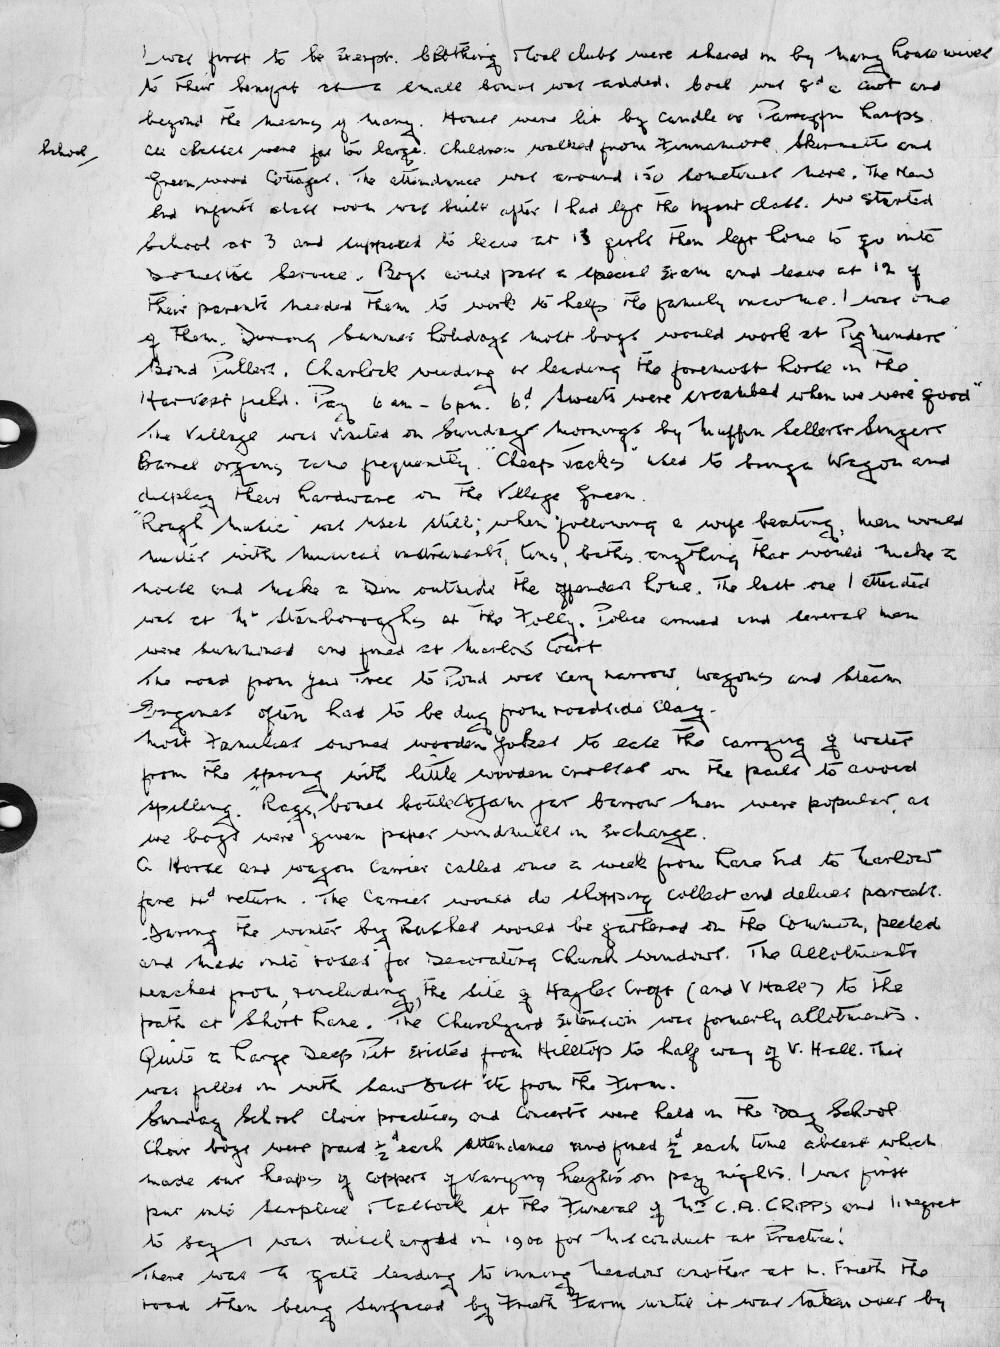 I was first to be exempt. Clothing & Coal clubs were shared in by many housewives
to their benefit as a small bonus was added. Coal was 8d a cwt and
beyond the means of many. Homes were lit by candle or Paraffin Lamps.
School
All classes were far too large. Children walked from Finnamore, Skirmett and
Greenwood Cottages. The attendance was around 150 sometimes more. The New
End infants class room was built after I had left the infant class. We started
School at 3 and supposed to leave at 13 girls then left home to go into
Domestic Service. Boys could pass a special Exam and leave at 12 if
their parents needed them to work to help the family income. I was one
of them. During Summer holidays most boys would work at Pig Minders
Bond Pullers, Charlock weeding or leading the foremost horse in the
Harvest field. Pay 6 am - 6 pm. 6d. Sweets were when we were "good"
The Village was visited on Sundays mornings by Muffin Sellers Singers
Barrel organs came frequently. "Cheap Jacks" used to bring a Wagon and
display their hardware on the Village Green.
"Rough Music" was used still; when following a wife beating, men would
muster with musical instruments, tins, baths anything that would make a
noise and make a Din outside the offenders home. The last one I attended
was at Mr Stanboroughs at The Folly. Police arrived and several men
were summoned and fined at Marlow Court
The road from Yew Tree to Pond was very narrow, wagons and Steam
Engines often had to be dug from roadside Clay.
Most Families owned wooden yokes to ease the carrying of water
from the spring with little wooden crosses on the pails to avoid
spilling. "Rags, bones bottle or jam jar" barrow men were popular, as
we boys were given paper windmills in Exchange.
A Horse and wagon Carrier called once a week from Lane End to Marlow
fare 4d return. The Carrier would do shopping collect and deliver parcels.
During the winter big Rushes would be gathered on the Common, peeled
and made into roses for Decorating Church windows. The Allotments
reached from, & including, the Site of Hayles Croft (and V Hall) to the
path at Short Lane. The Churchyard Extension was formerly allotments.
Quite a Large Deep Pit Existed from Hilltop to half way of V. Hall. This
was filled in with Saw Dust etc from the Firm.
Sunday School Choir practices and Concerts were held in the Day School
Choir boys were paid ½d each attendance and fined ½d each time absent which
made our heaps of coppers of varying heights on pay nights. I was first
put into Surplice & Cassock at the Funeral of Mrs C.A. CRIPPS and I regret
to say I was discharged in 1900 for Misconduct at Practice!
There was a gate leading to Inning Meadow another at L. Frieth the
road then being surfaced by Frieth Farm until it was taken over by